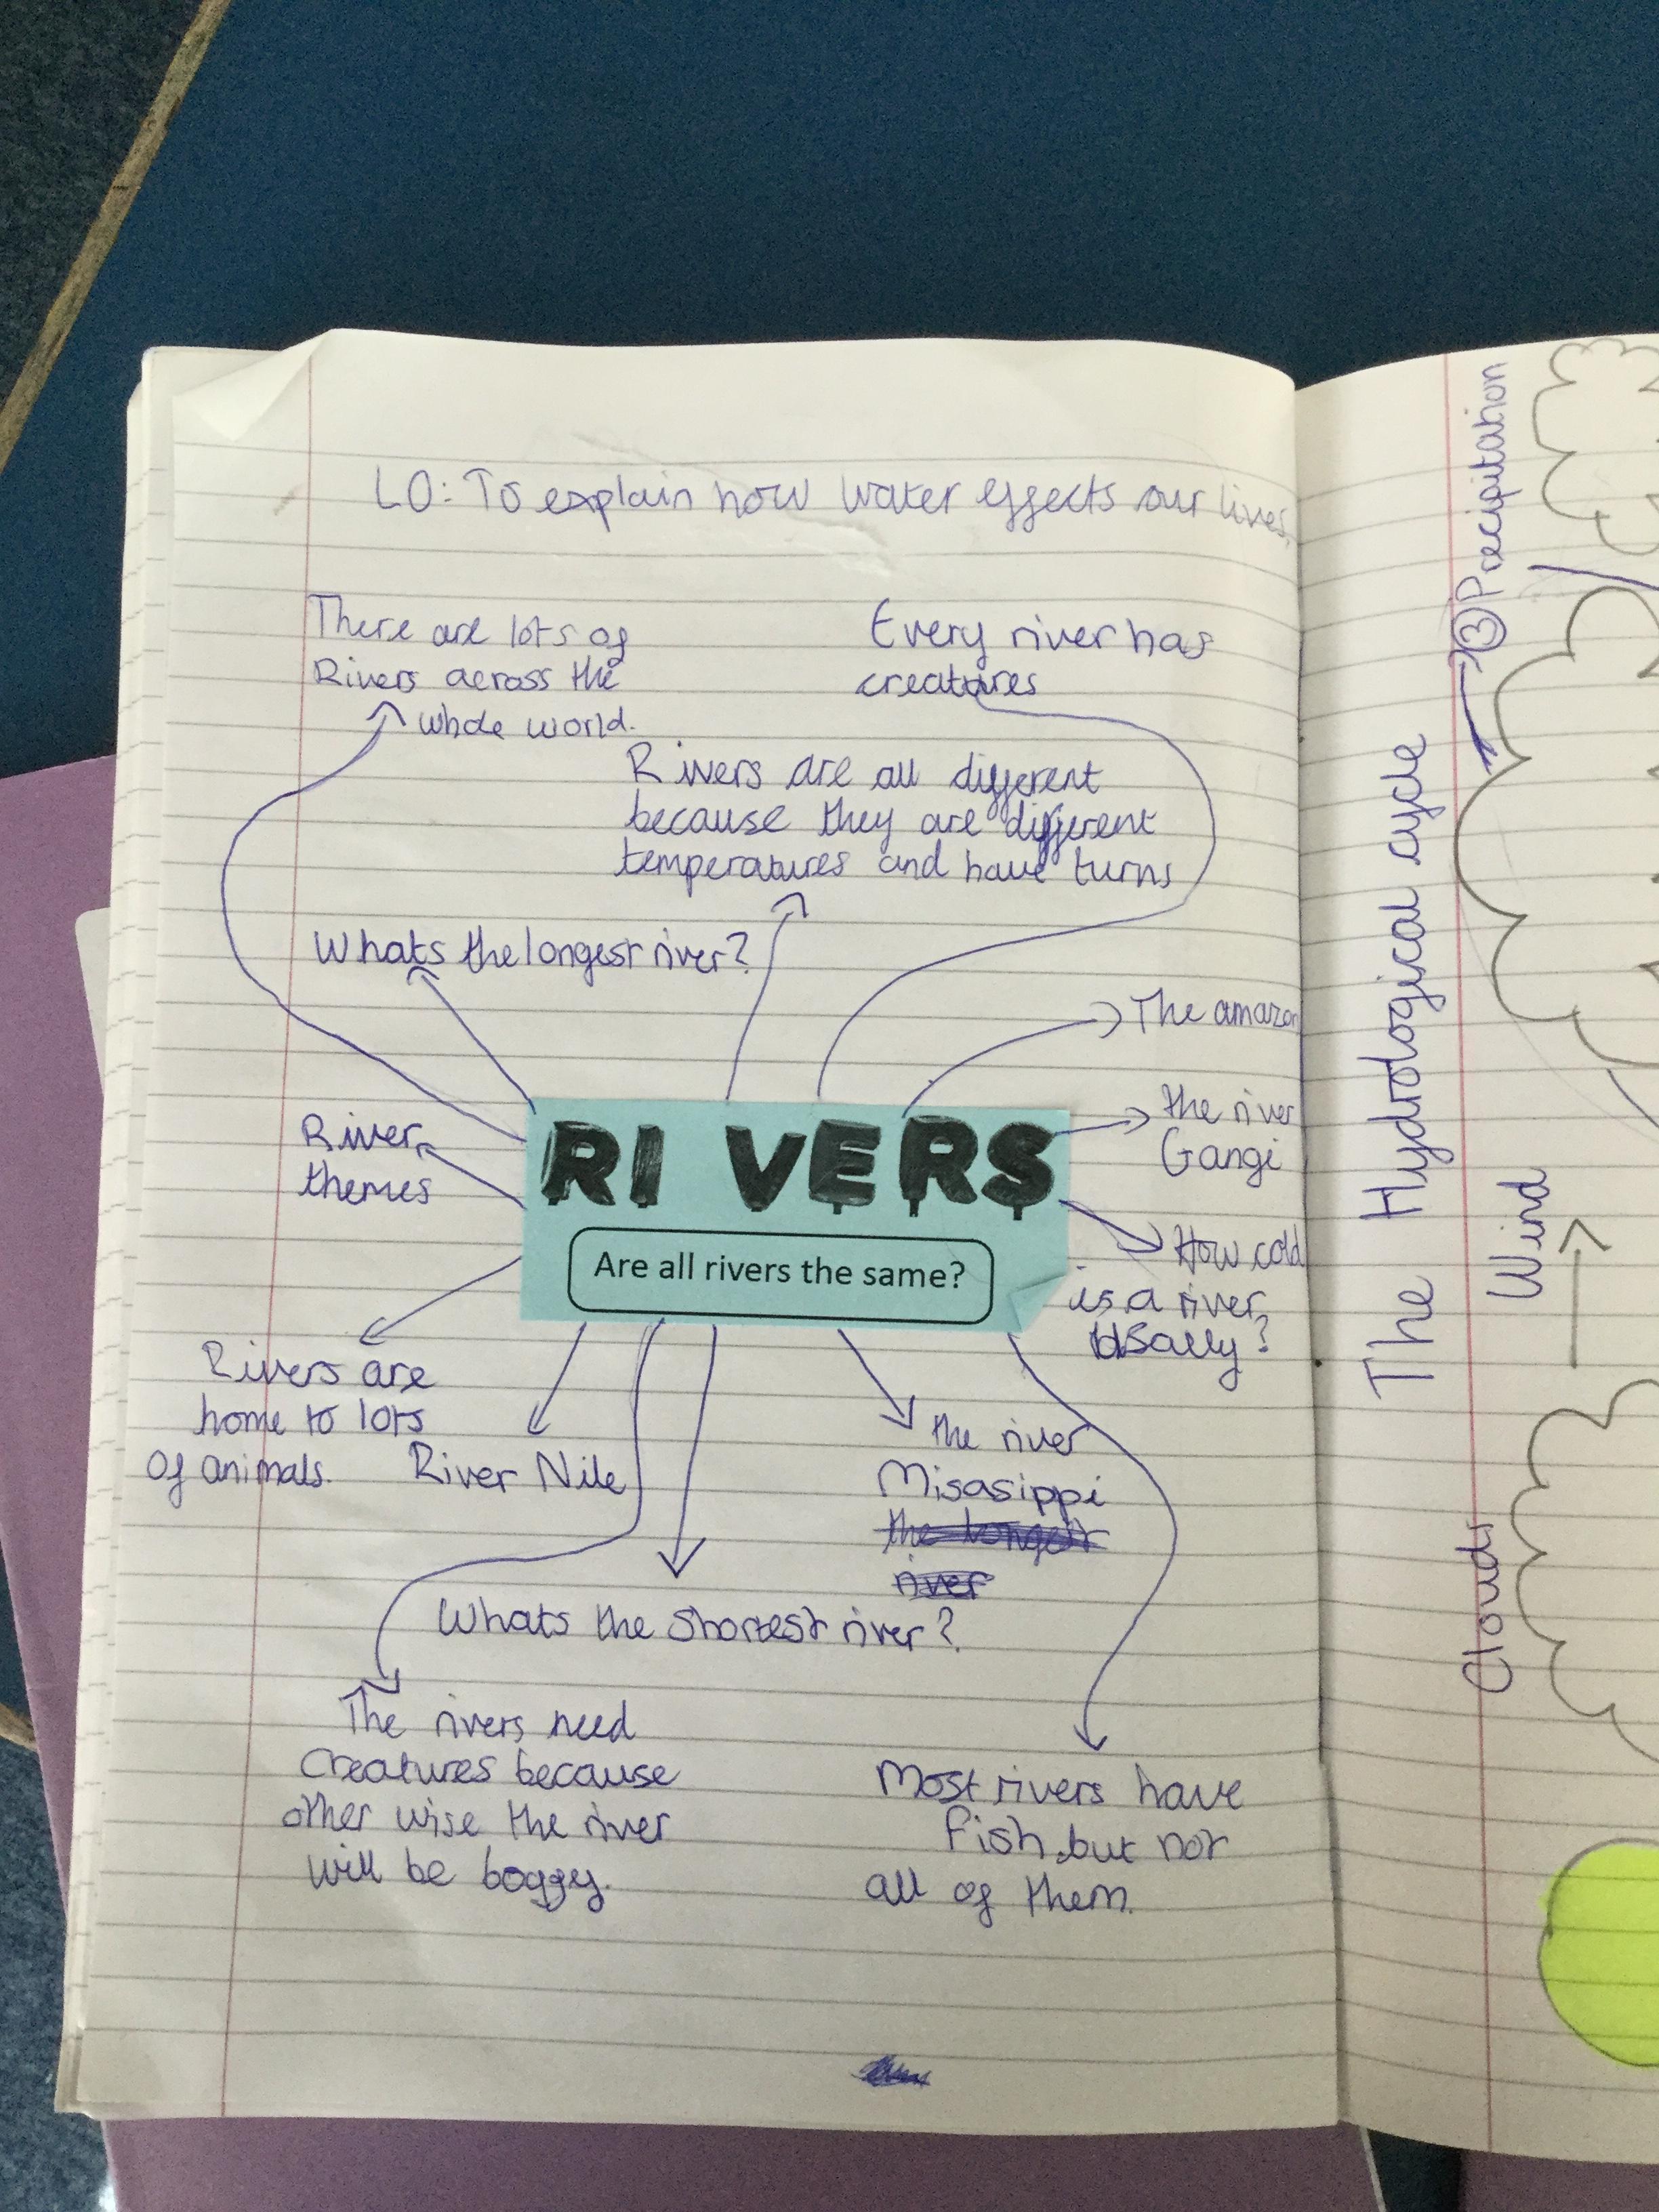 LO: To explain how water effects our lives.
There are lots of
Rivers across the
whole world.
Every river has
creatures
Rivers are all different
because they are different
temperatures and have turns
Whats the longest river?
The amazon
the river
Gangi
River
themes
RIVERS
Are all rivers the same?
How cold
is a river,
?
Rivers are
home to lots
of animals.
River Nile
the river
Misasippi
the longest
river
Whats the shortest river?
The rivers need
creatures because
other wise the river
will be boggy.
Most rivers have
fish, but not
all of them.
The Hydrological cycle
3 Precipitation
Wind
Clouds